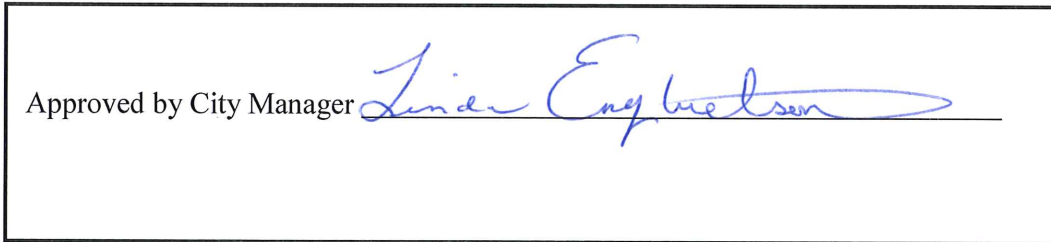 Approved by City Manager Linda Engbretson